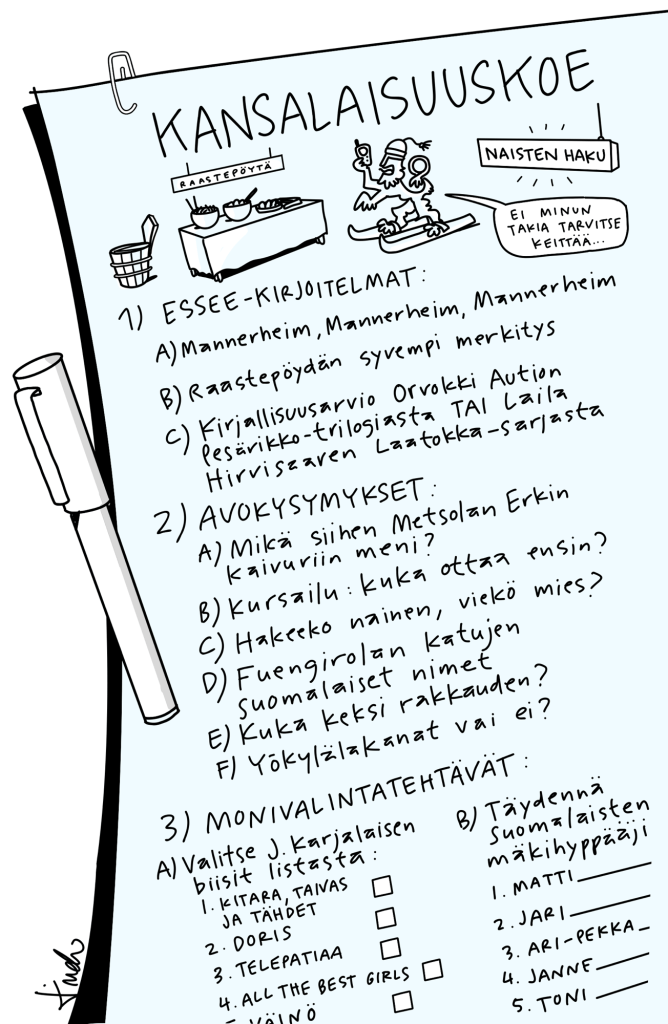 KANSALAISUUSKOE
RAASTEPÖYTÄ
NAISTEN HAKU
EI MINUN
TAKIA TARVITSE
KEITTÄÄ...
1) ESSEE-KIRJOITELMAT:
A) Mannerheim, Mannerheim, Mannerheim
B) Raastepöydän syvempi merkitys
C) Kirjallisuusarvio Orvokki Aution
Pesärikko-trilogiasta TAI Laila
Hirvisaaren Laatokka-sarjasta
2) AVOKYSYMYKSET:
A) Mikä siihen Metsolan Erkin
kaivuriin meni?
B) Kursailu: kuka ottaa ensin?
C) Hakeeko nainen, viekö mies?
D) Fuengirolan katujen
suomalaiset nimet
E) Kuka keksi rakkauden?
F) Yökylälakanat vai ei?
3) MONIVALINTATEHTÄVÄT:
A) Valitse J. Karjalaisen
biisit listasta:
1. KITARA, TAIVAS
JA TÄHDET
2. DORIS
3. TELEPATIAA
4. ALL THE BEST GIRLS
5. VÄINÖ
B) Täydennä
Suomalaisten
mäkihyppääji
1. MATTI
2. JARI
3. ARI-PEKKA
4. JANNE
5. TONI